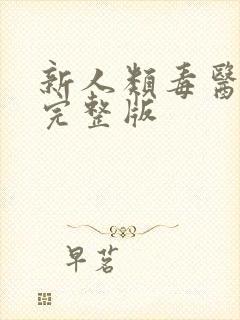 新人類毒醫
完整版
早茗